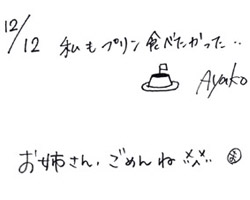 12/12 私もプリン食べたかった‥
Ayako
お姉さん、ごめんね